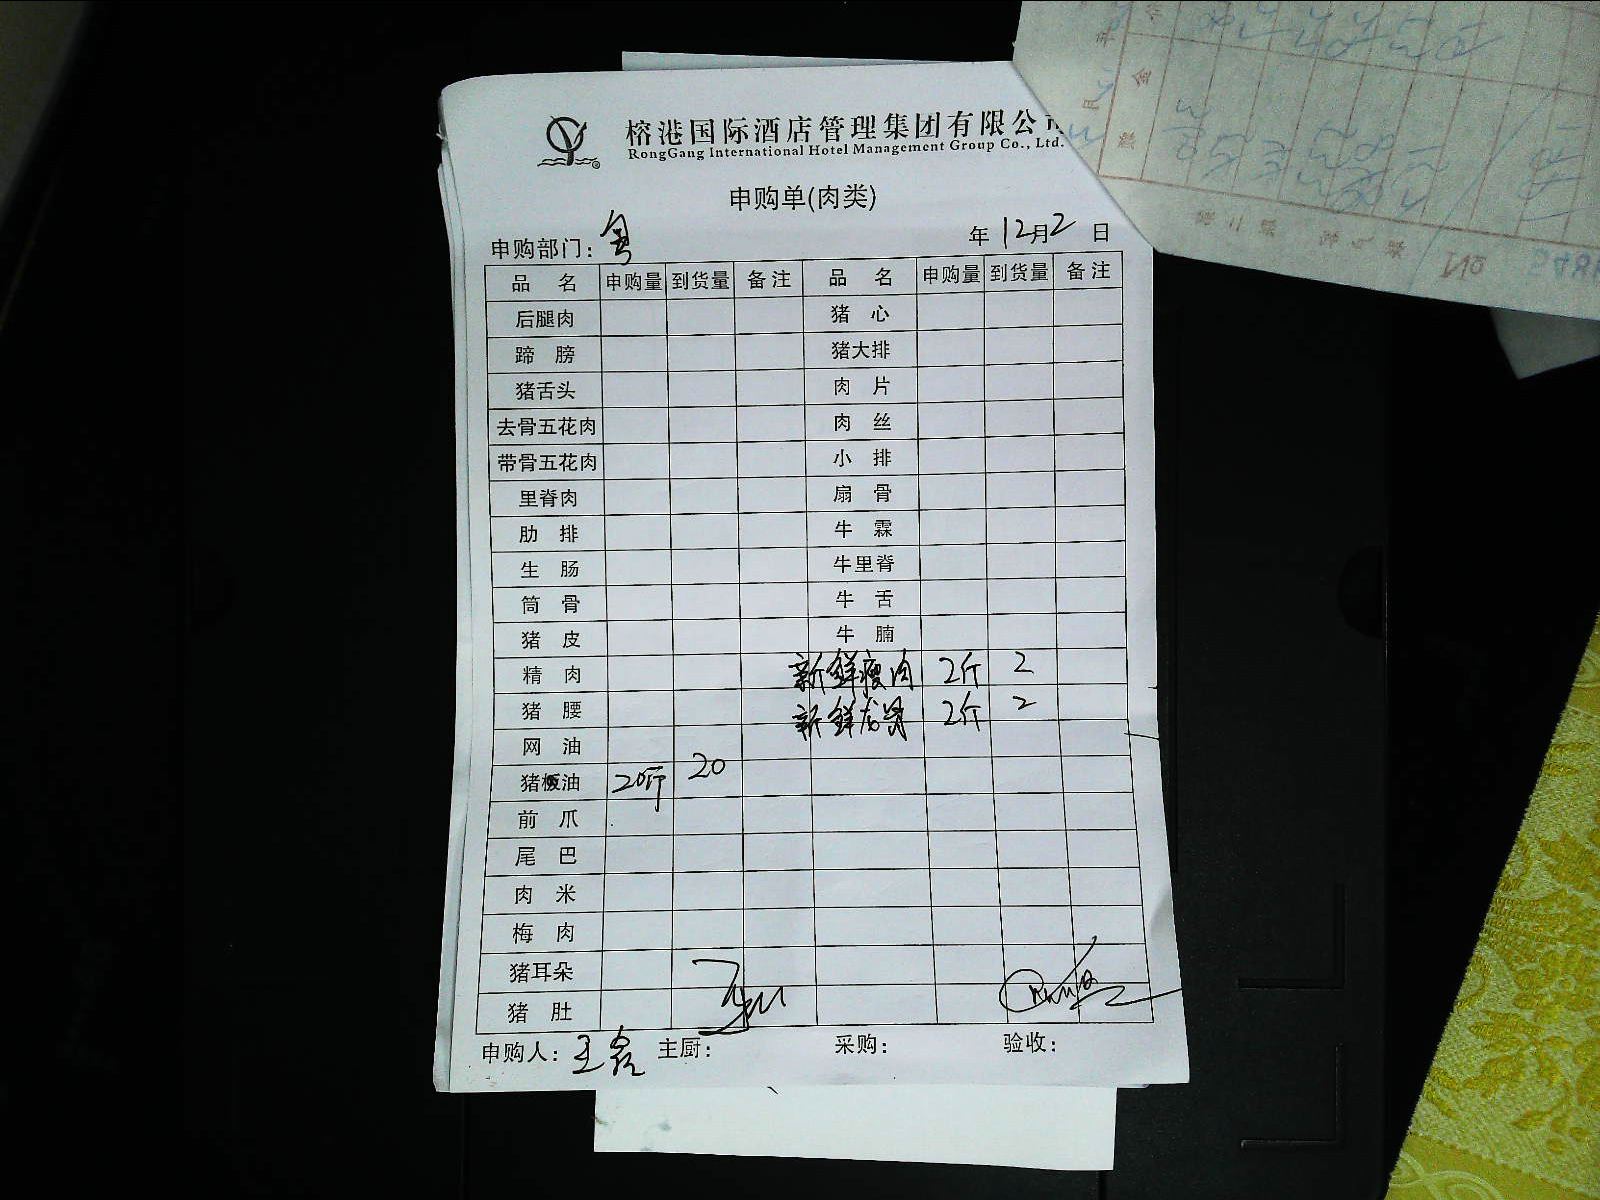 榕港国际酒店管理集团有限公司
RongGang International Hotel Management Group Co., Ltd.
申购单(肉类)
申购部门: 粤 年 12月2日
品 名 申购量 到货量 备注 品 名 申购量 到货量 备注
后腿肉 猪 心
蹄 膀 猪大排
猪舌头 肉 片
去骨五花肉 肉 丝
带骨五花肉 小 排
里脊肉 扇 骨
肋 排 牛 霖
生 肠 牛里脊
筒 骨 牛 舌
猪 皮 牛 腩
精 肉 新鲜瘦肉 2斤 2
猪 腰 新鲜龙骨 2斤 2
网 油
猪板油 20斤 20
前 爪
尾 巴
肉 米
梅 肉
猪耳朵
猪 肚
申购人: 王 主厨: 采购: 验收: